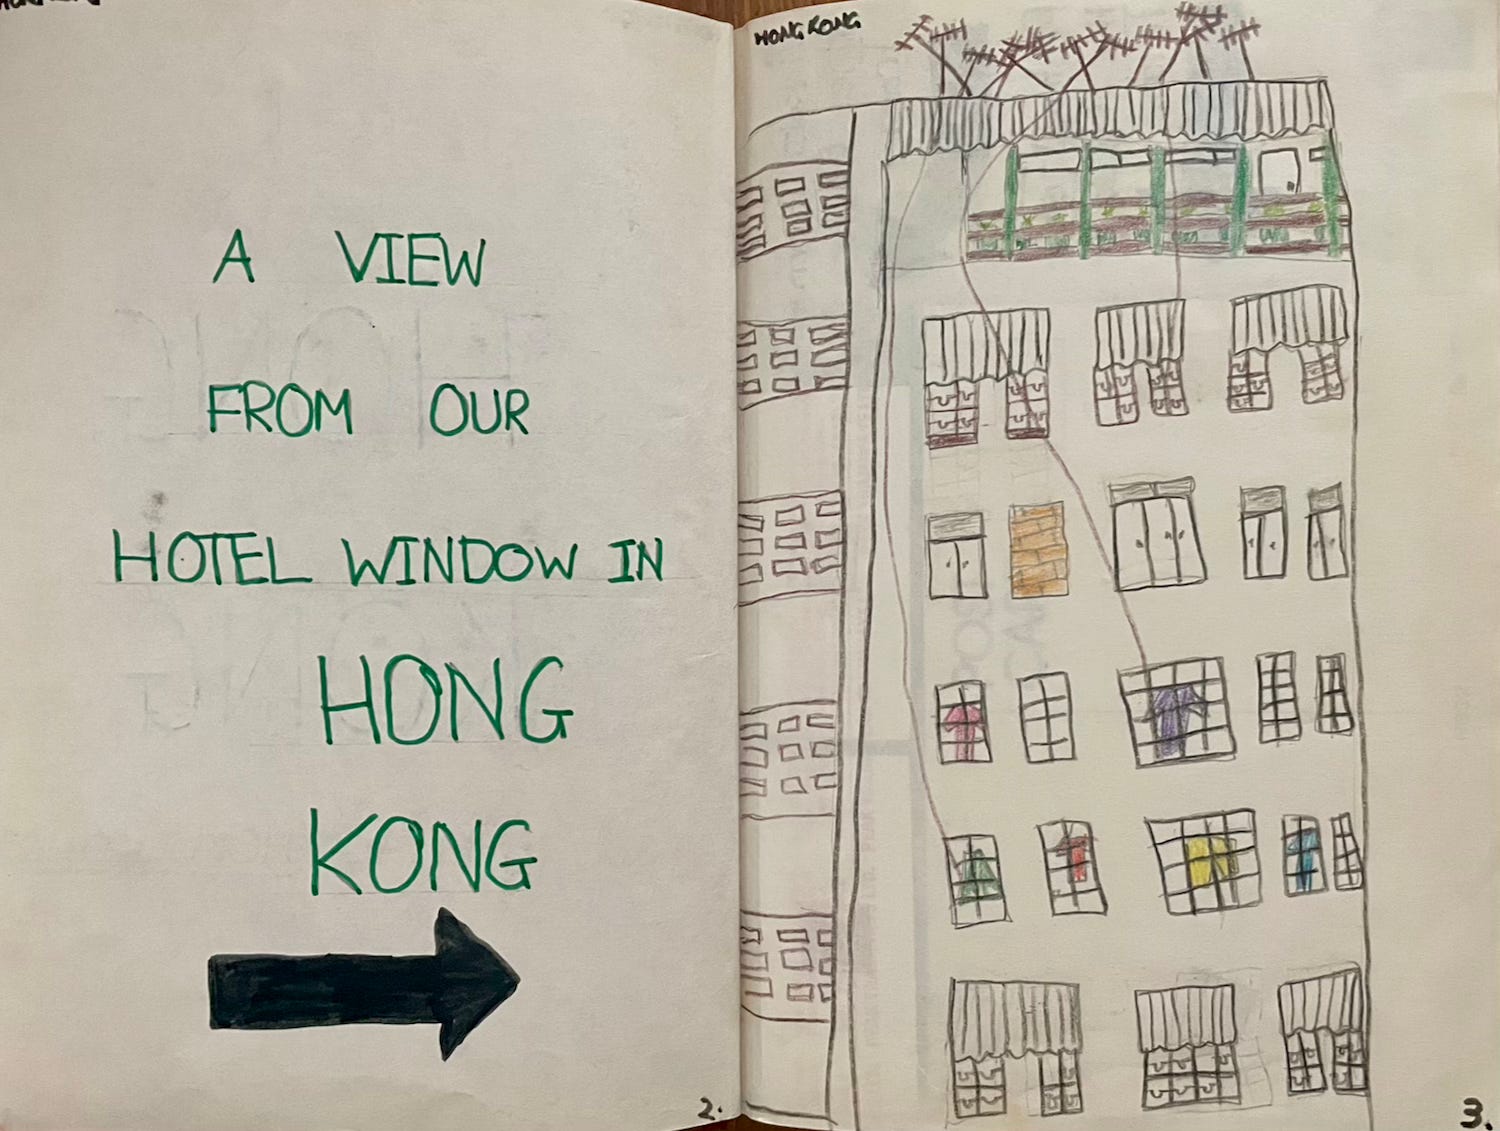 A VIEW
FROM OUR
HOTEL WINDOW IN
HONG
KONG
2.
HONG KONG
3.